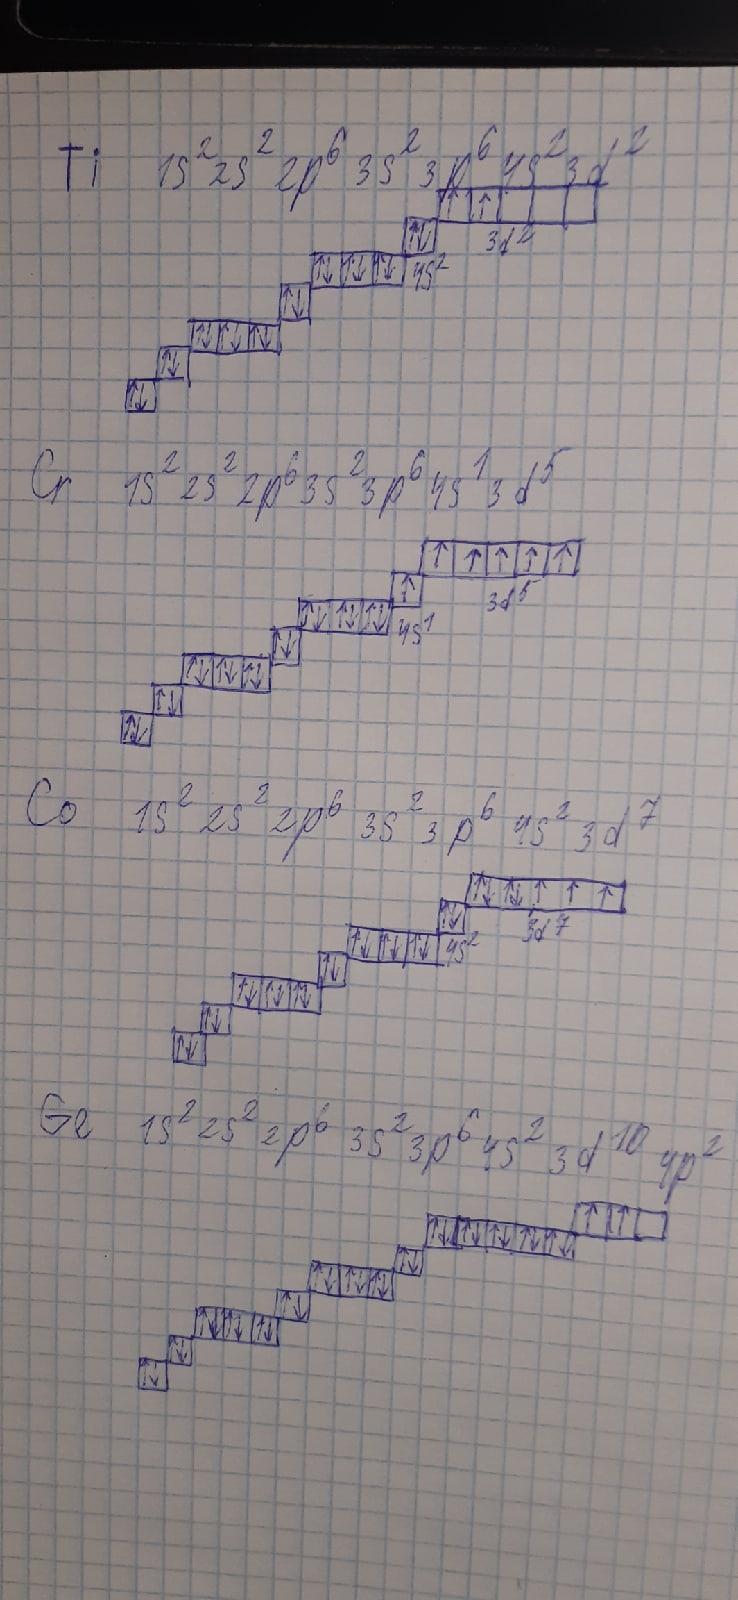 Ti 1s² 2s² 2p⁶ 3s² 3p⁶ 4s² 3d²
↑ ↑
3d²
↑↓
4s²
↑↓ ↑↓ ↑↓
↑↓
↑↓ ↑↓ ↑↓
↑↓
↑↓
Cr 1s² 2s² 2p⁶ 3s² 3p⁶ 4s¹ 3d⁵
↑ ↑ ↑ ↑ ↑
3d⁵
↑
4s¹
↑↓ ↑↓ ↑↓
↑↓
↑↓ ↑↓ ↑↓
↑↓
↑↓
Co 1s² 2s² 2p⁶ 3s² 3p⁶ 4s² 3d⁷
↑↓ ↑↓ ↑ ↑ ↑
3d⁷
↑↓
4s²
↑↓ ↑↓ ↑↓
↑↓
↑↓ ↑↓ ↑↓
↑↓
↑↓
Ge 1s² 2s² 2p⁶ 3s² 3p⁶ 4s² 3d¹⁰ 4p²
↑ ↑
↑↓ ↑↓ ↑↓ ↑↓ ↑↓
↑↓
↑↓ ↑↓ ↑↓
↑↓
↑↓ ↑↓ ↑↓
↑↓
↑↓